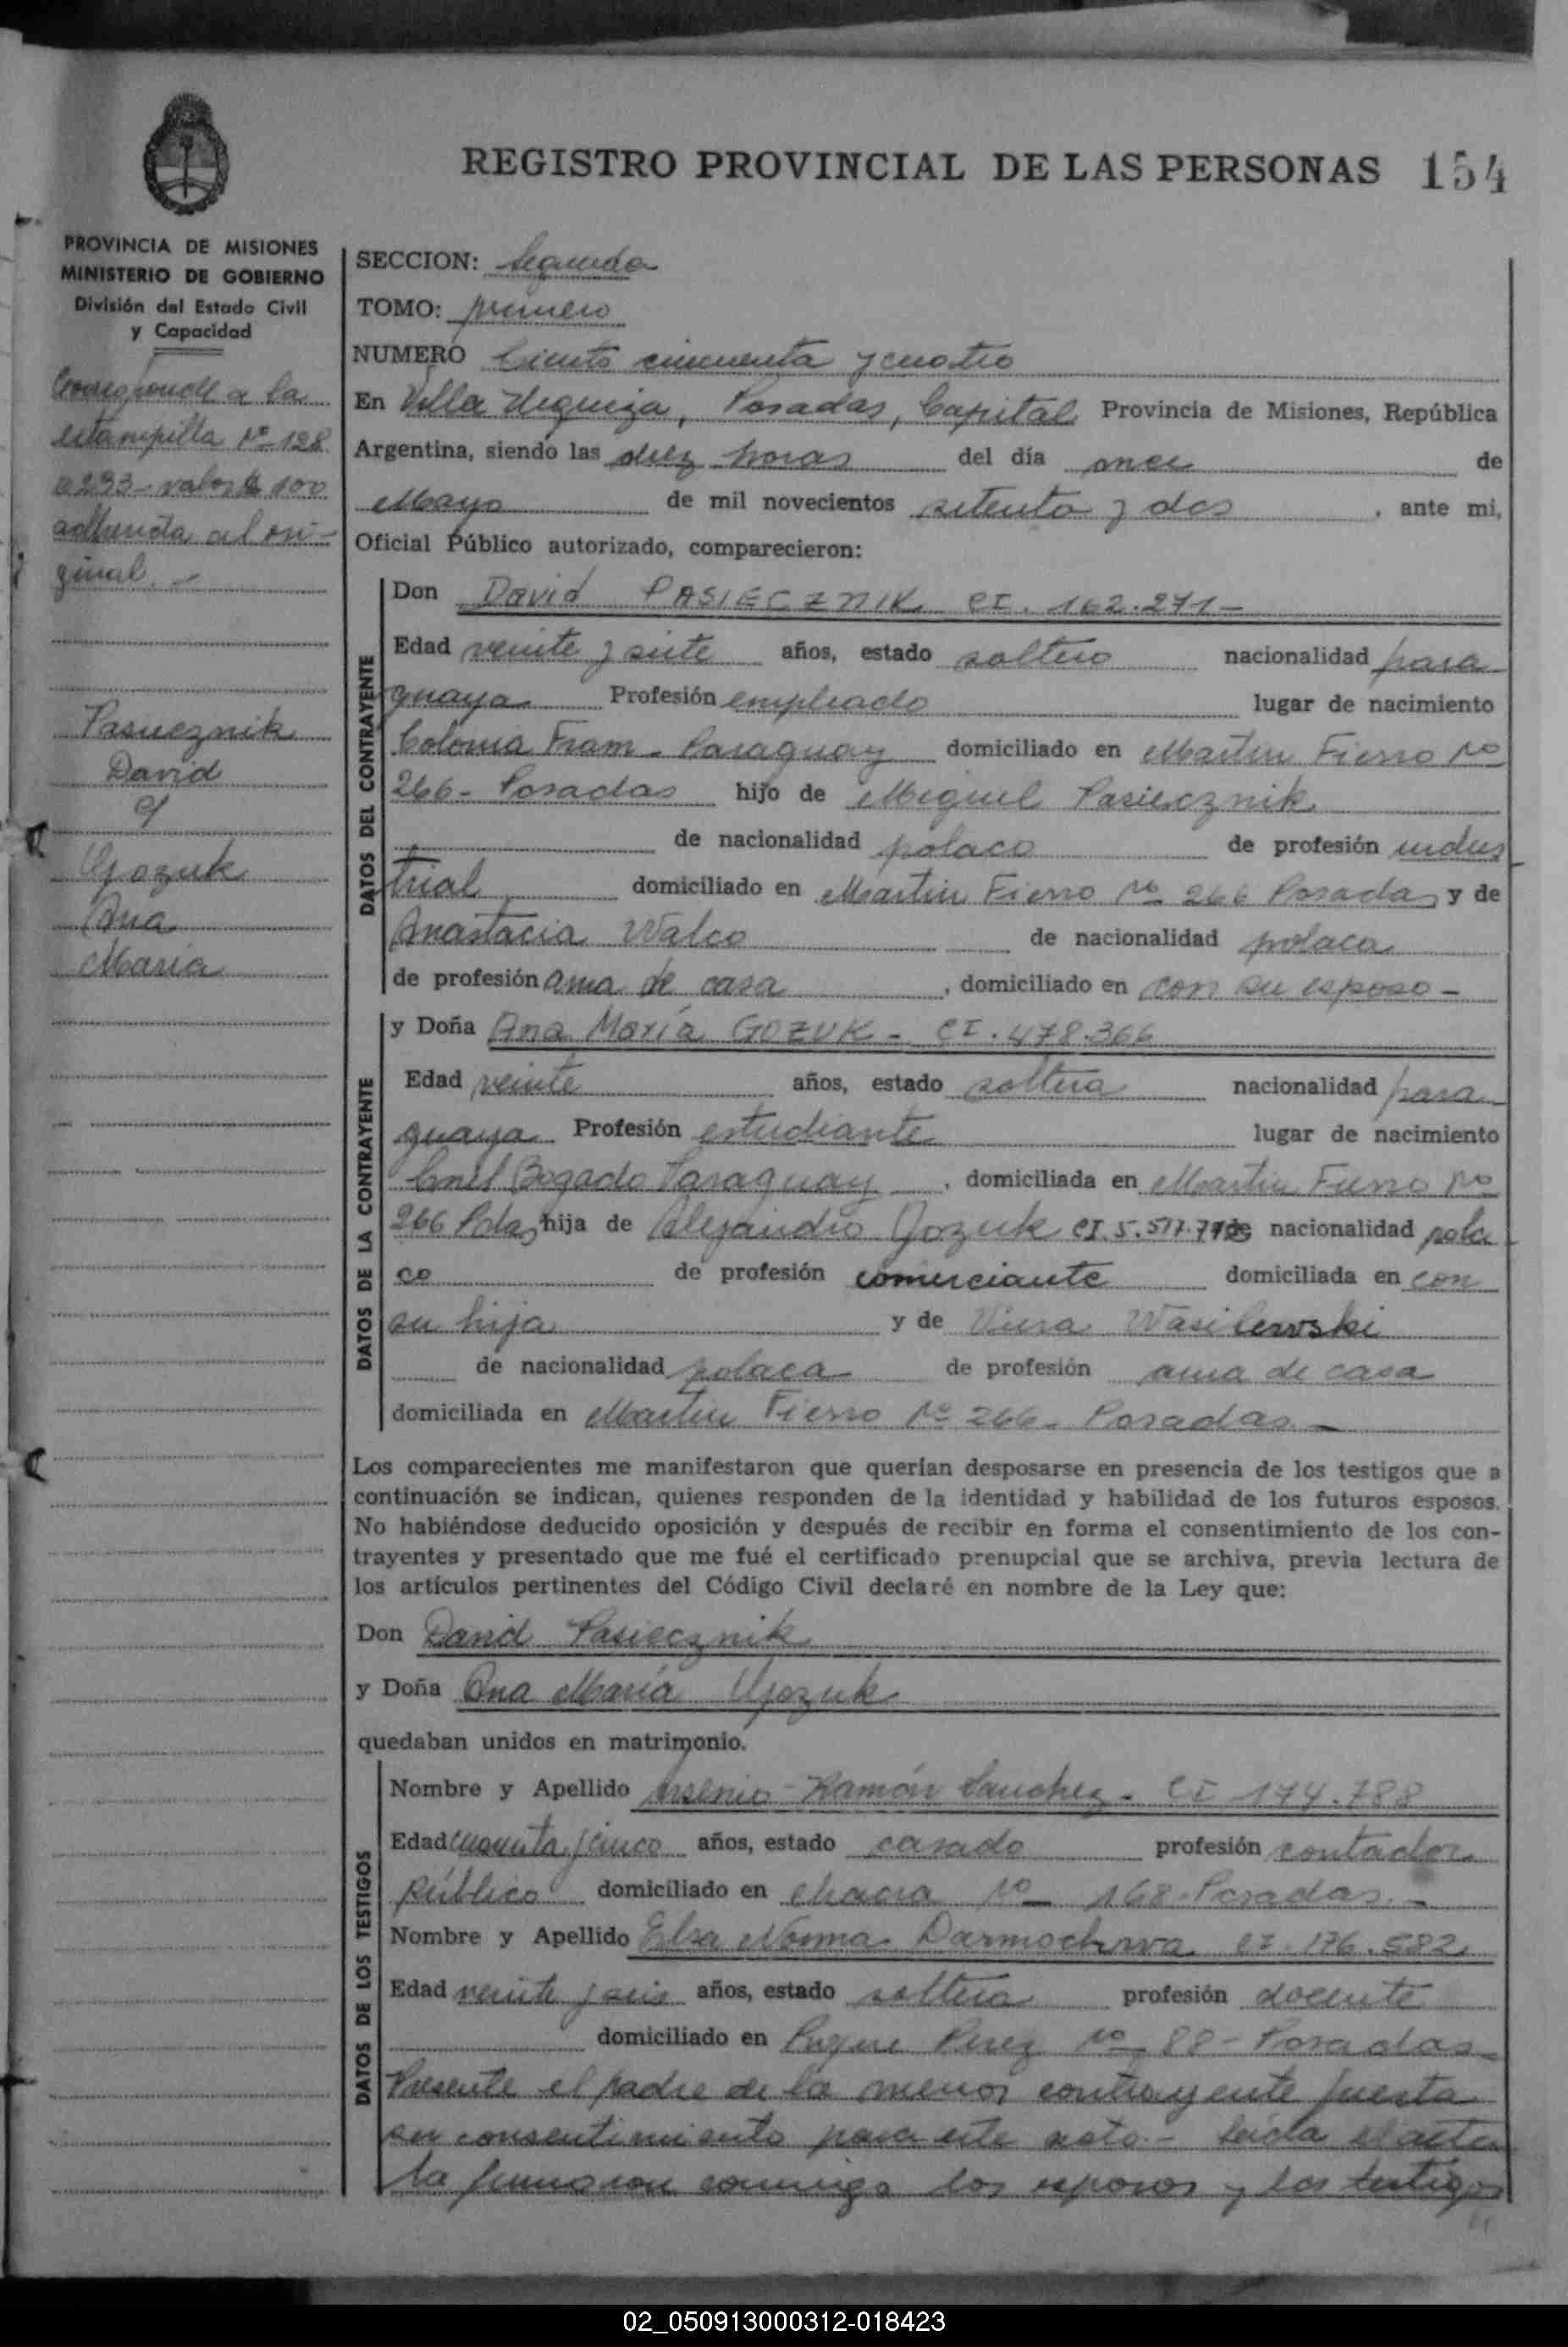 REGISTRO PROVINCIAL DE LAS PERSONAS 154
PROVINCIA DE MISIONES
MINISTERIO DE GOBIERNO
División del Estado Civil
y Capacidad
Corresponde a la
estampilla Nº 128
0293 - valor $ 100
adherida al ori-
ginal. -
Pasiecznik
David
y
Gozuk
Ana
María
SECCION: Segunda
TOMO: primero
NUMERO Ciento cincuenta y cuatro
En Villa Urquiza, Posadas, Capital Provincia de Misiones, República
Argentina, siendo las diez horas del día once de
Mayo de mil novecientos setenta y dos, ante mi,
Oficial Público autorizado, comparecieron:
DATOS DEL CONTRAYENTE
Don David PASIECZNIK CI. 162.271-
Edad veinte y siete años, estado soltero nacionalidad para
guaya Profesión empleado lugar de nacimiento
Colonia Fram - Paraguay domiciliado en Martín Fierro Nº
266 - Posadas hijo de Miguel Pasiecznik
de nacionalidad polaco de profesión indus
trial domiciliado en Martin Fierro Nº 266 Posadas y de
Anastacia Walco de nacionalidad polaca
de profesión ama de casa, domiciliado en con su esposo -
DATOS DE LA CONTRAYENTE
y Doña Ana María GOZUK - CI. 478.366
Edad veinte años, estado soltera nacionalidad para
guaya Profesión estudiante lugar de nacimiento
Cnel Bogado Paraguay, domiciliada en Martín Fierro Nº
266 Pdas, hija de Alejandro Gozuk CI. 5.517. de nacionalidad pola
co de profesión comerciante domiciliada en con
su hija y de Viera Wasilewski
de nacionalidad polaca de profesión ama de casa
domiciliada en Martín Fierro Nº 266 - Posadas. -
Los comparecientes me manifestaron que querían desposarse en presencia de los testigos que a
continuación se indican, quienes responden de la identidad y habilidad de los futuros esposos.
No habiéndose deducido oposición y después de recibir en forma el consentimiento de los con-
trayentes y presentado que me fué el certificado prenupcial que se archiva, previa lectura de
los artículos pertinentes del Código Civil declaré en nombre de la Ley que:
Don David Pasiecznik
y Doña Ana María Gozuk
quedaban unidos en matrimonio.
DATOS DE LOS TESTIGOS
Nombre y Apellido Arsenio Ramón Sanchez - CI 174.788
Edad cuarenta y cinco años, estado casado profesión contador
público domiciliado en chacra Nº 168 - Posadas. -
Nombre y Apellido Elsa Norma CI. 176.582
Edad veinte y seis años, estado soltera profesión docente
domiciliado en Roque Perez Nº 88 - Posadas
Presente el padre de la menor contrayente presta
su consentimiento para este acto. - Leída el acta
la firmaron conmigo los esposos y los testigos
02_050913000312-018423